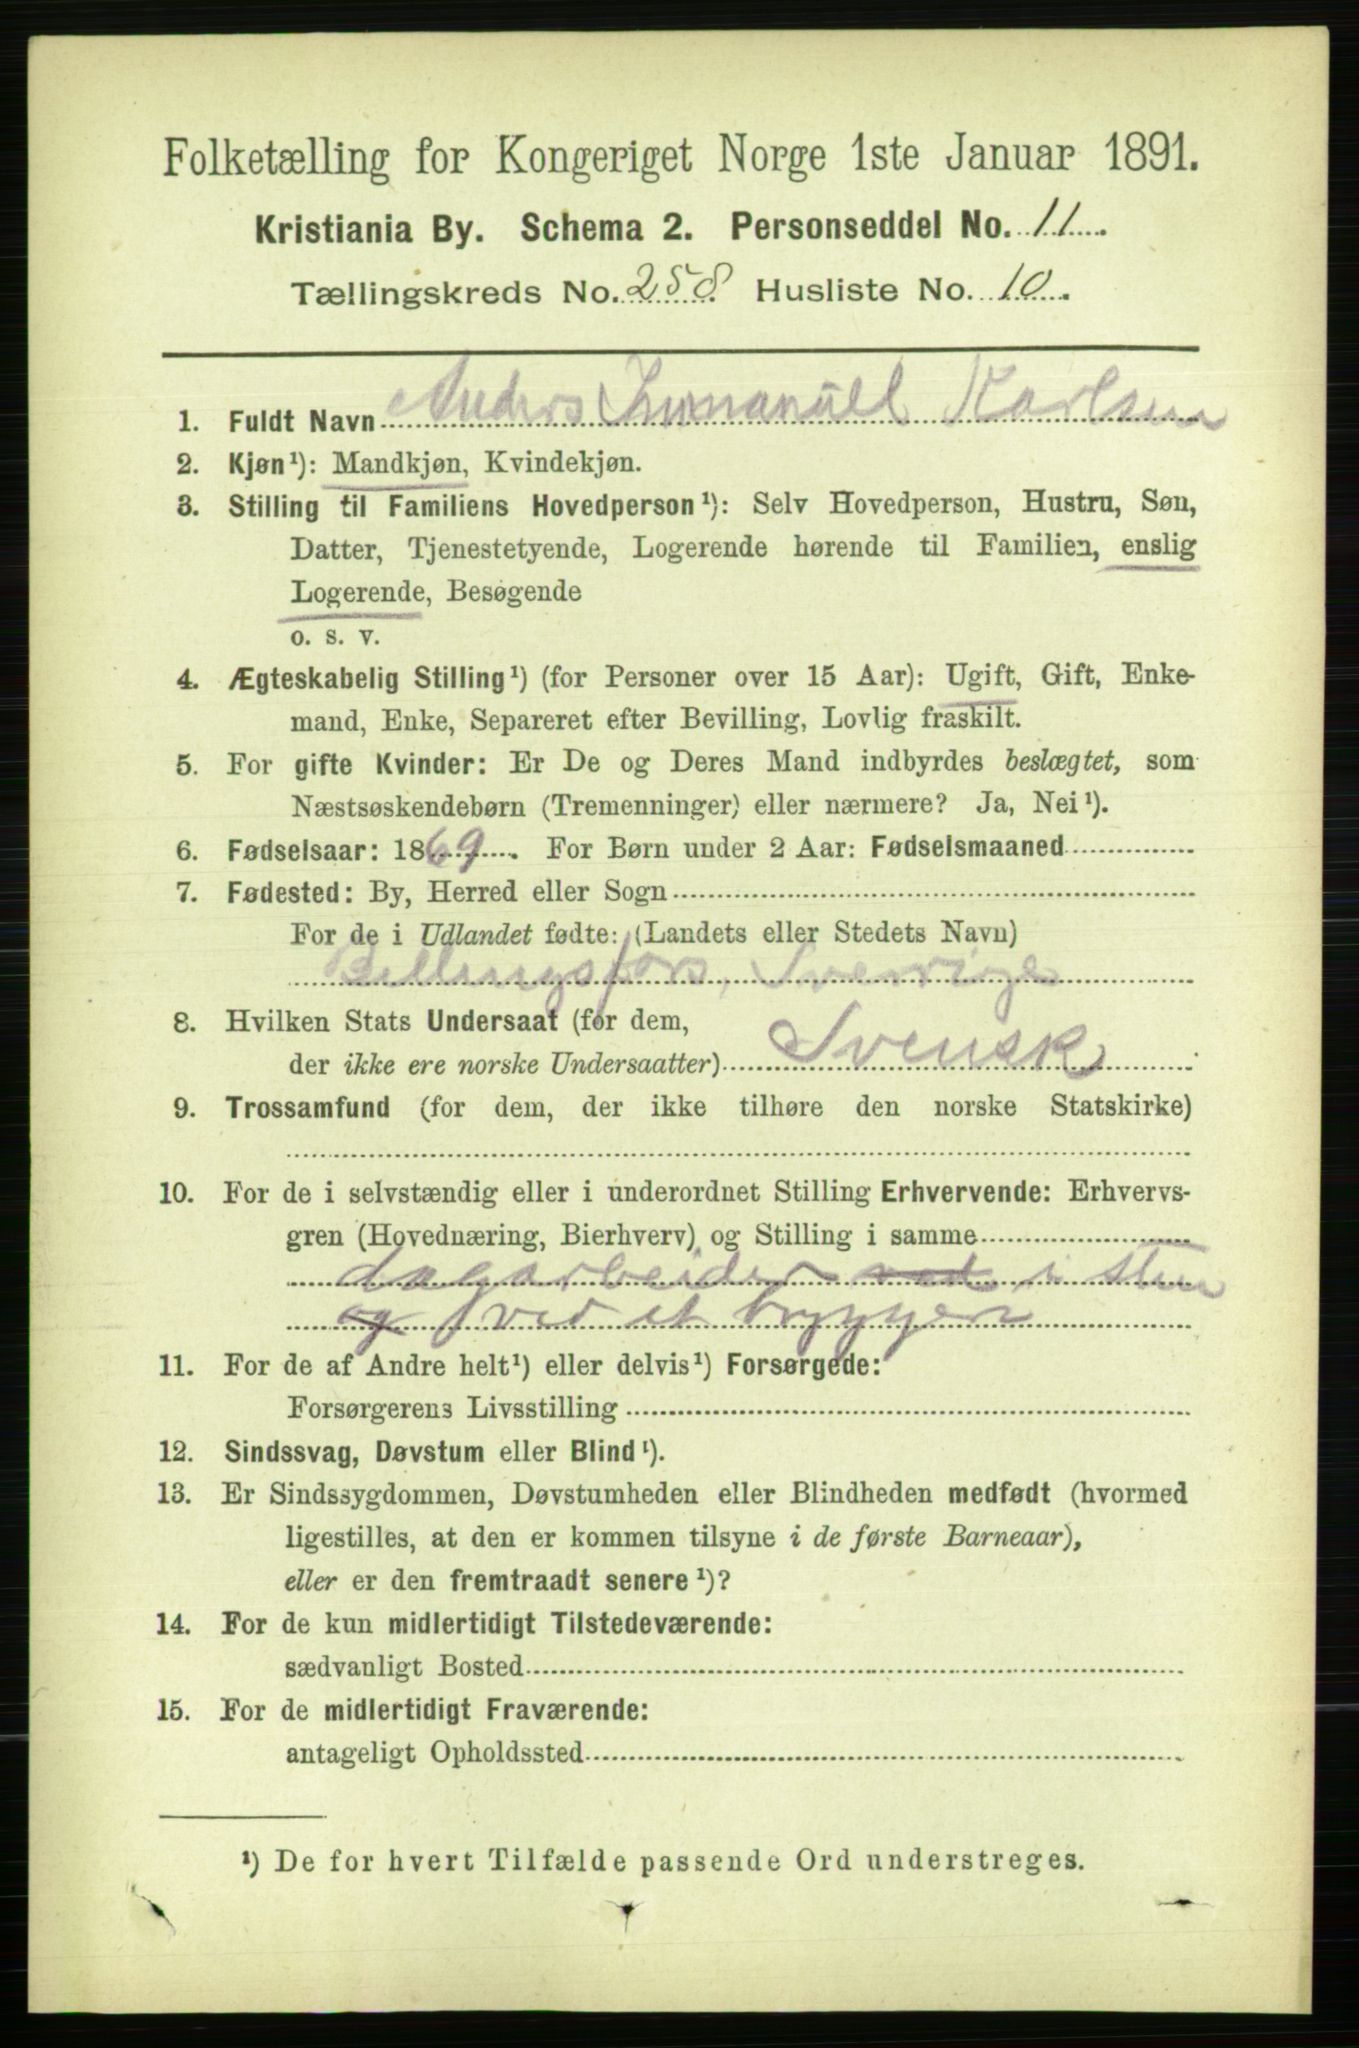 Folketælling for Kongeriget Norge 1ste Januar 1891.
Kristiania By. Schema 2. Personseddel No. 11.
Tællingskreds No. 258. Husliste No. 10.
1. Fuldt Navn Anders Immanuel Karlsen
2. Kjøn¹): Mandkjøn, Kvindekjøn.
3. Stilling til Familiens Hovedperson¹): Selv Hovedperson, Hustru, Søn,
Datter, Tjenestetyende, Logerende hørende til Familien, enslig
Logerende, Besøgende
o. s. v.
4. Ægteskabelig Stilling¹) (for Personer over 15 Aar): Ugift, Gift, Enke-
mand, Enke, Separeret efter Bevilling, Lovlig fraskilt.
5. For gifte Kvinder: Er De og Deres Mand indbyrdes beslægtet, som
Næstsøskendebørn (Tremenninger) eller nærmere? Ja, Nei¹).
6. Fødselsaar: 1869. For Børn under 2 Aar: Fødselsmaaned
7. Fødested: By, Herred eller Sogn
For de i Udlandet fødte: (Landets eller Stedets Navn)
Billingsfors, Sverrige
8. Hvilken Stats Undersaat (for dem,
der ikke ere norske Undersaatter) Svensk
9. Trossamfund (for dem, der ikke tilhøre den norske Statskirke)
10. For de i selvstændig eller i underordnet Stilling Erhvervende: Erhvervs-
gren (Hovednæring, Bierhverv) og Stilling i samme
dagarbeider ved i sten
og ved et bryggeri
11. For de af Andre helt¹) eller delvis¹) Forsørgede:
Forsørgerens Livsstilling
12. Sindssvag, Døvstum eller Blind¹).
13. Er Sindssygdommen, Døvstumheden eller Blindheden medfødt (hvormed
ligestilles, at den er kommen tilsyne i de første Barneaar),
eller er den fremtraadt senere¹)?
14. For de kun midlertidigt Tilstedeværende:
sædvanligt Bosted
15. For de midlertidigt Fraværende:
antageligt Opholdssted
¹) De for hvert Tilfælde passende Ord understreges.